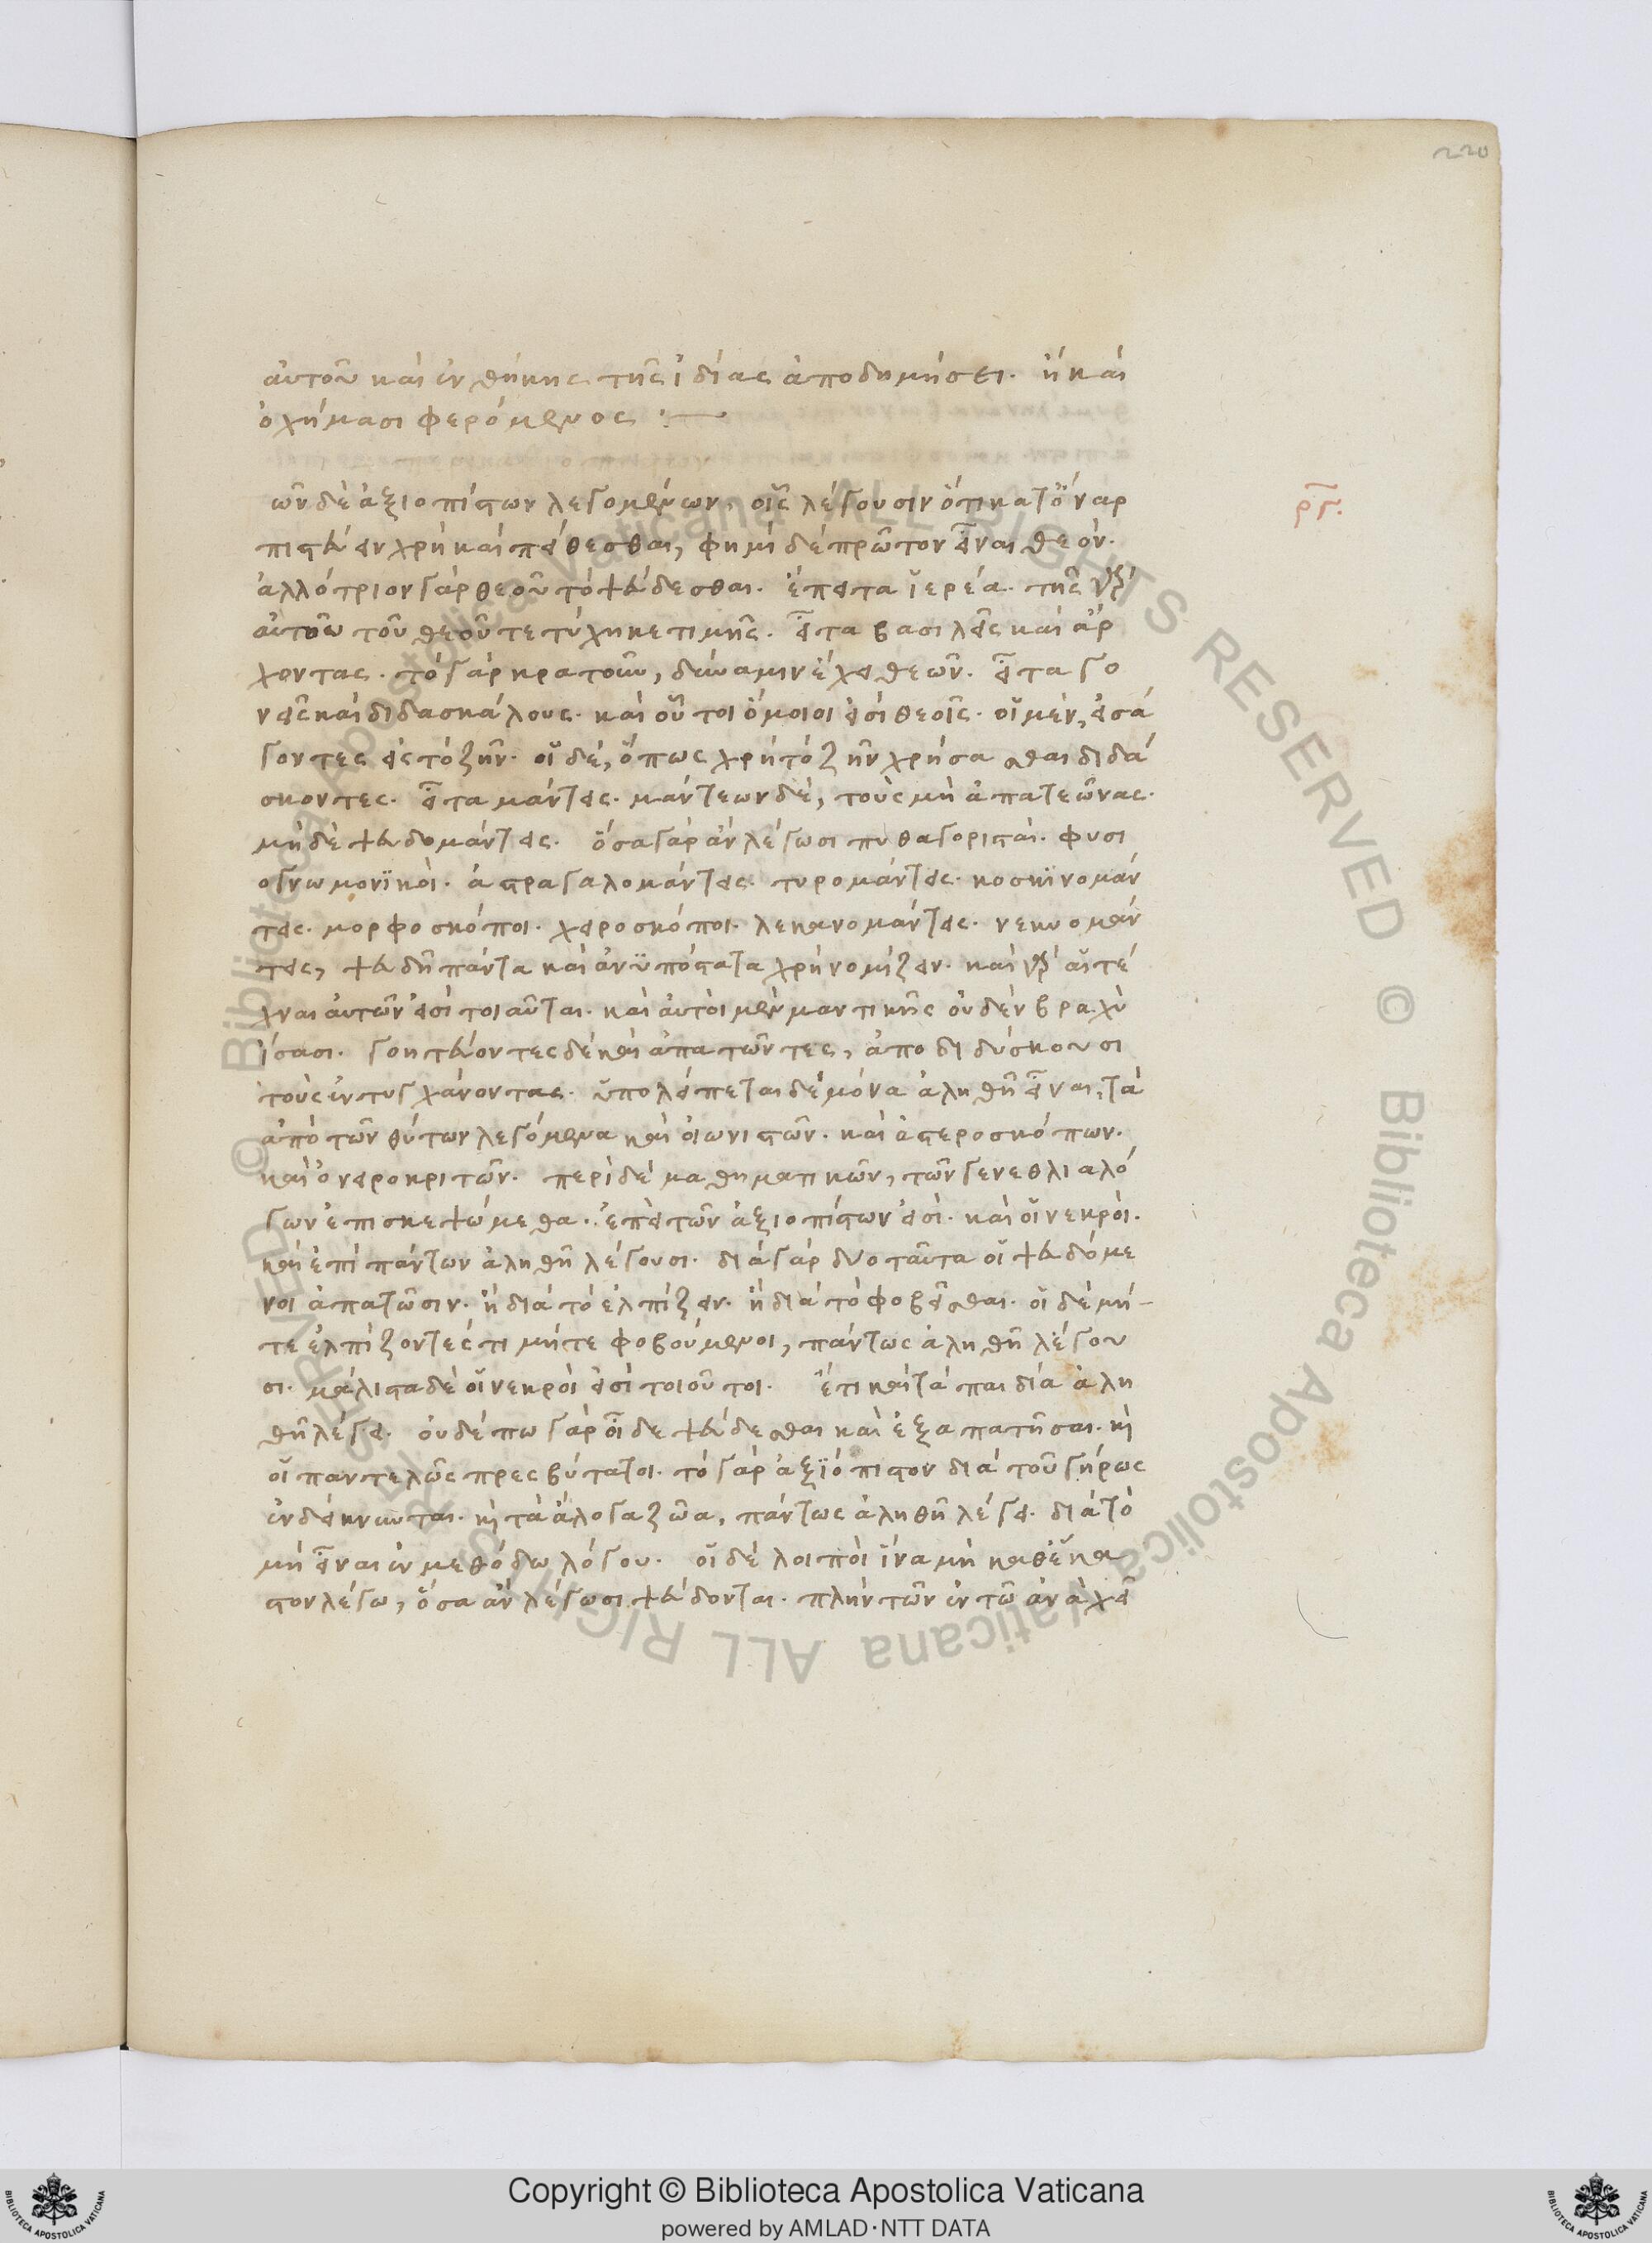 220
αὐτοῦ καὶ ἐνθήκης τῆς ἰδίας ἀποδημήσει. ἢ καὶ
ὀχήμασι φερόμενος :—
ῶν δὲ ἀξιοπίστων λεγομένων, οἷς λέγουσιν ὅτι κατ' ὄναρ
ργ.
πιστεύειν χρὴ καὶ πείθεσθαι, φημὶ δὲ πρῶτον εἶναι θεόν.
ἀλλότριον γὰρ θεοῦ τὸ ψεύδεσθαι. ἔπειτα ἱερέα. τῆς γὰρ
αὐτοῦ τοῦ θεοῦ τετύχηκε τιμῆς. εἶτα βασιλεῖς καὶ ἄρ
χοντας. τὸ γὰρ κρατοῦν, δύναμιν ἔχει θεῶν. εἶτα γο
νεῖς καὶ διδασκάλους. καὶ οὗτοι ὅμοιοι εἰσὶ θεοῖς. οἱ μὲν, εἰσά
γοντες εἰς τὸ ζῆν. οἱ δὲ, ὅπως χρὴ τὸ ζῆν χρήσασθαι διδά
σκοντες. εἶτα μάντεις. μάντεων δὲ, τοὺς μὴ ἀπατεῶνας.
μηδὲ ψευδομάντεις. ὅσα γὰρ ἂν λέγωσι πυθαγορισταὶ. φυσι
ογνωμονϊκοὶ. ἀστραγαλομάντεις. τυρομάντεις. κοσκϊνομάν
τεις. μορφοσκόποι. χειροσκόποι. λεκανομάντεις. νεκυομάν
τεις, ψευδῆ πάντα καὶ ἀνϋπόστατα χρὴ νομίζειν. καὶ γὰρ αἱ τέ
χναι αὐτῶν εἰσὶ τοιαῦται. καὶ αὐτοὶ μὲν μαντικῆς οὐδὲν βραχὺ
ἴσασι. γοητεύοντες δὲ καὶ ἀπατῶντες, ἀποδιδύσκουσι
τοὺς ἐντυγχάνοντας. ὑπολείπεται δὲ μόνα ἀληθῆ εἶναι, τὰ
ἀπὸ τῶν θύτων λεγόμενα καὶ οἰωνιστῶν. καὶ ἀστεροσκόπων.
καὶ ὀνειροκριτῶν. περὶ δὲ μαθηματικῶν, τῶν γενεθλιαλό
γων ἐπισκεψώμεθα. ἐπεὶ τῶν ἀξιοπίστων εἰσὶ. καὶ οἱ νεκροὶ.
καὶ ἐπὶ πάντων ἀληθῆ λέγουσι. διὰ γὰρ δύο ταῦτα οἱ ψευδόμε
νοι ἀπατῶσιν. ἢ διὰ τὸ ἐλπίζειν. ἢ διὰ τὸ φοβεῖσθαι. οἱ δὲ μή-
τε ἐλπίζοντές τι μήτε φοβούμενοι, πάντως ἀληθῆ λέγου
σι. μάλιστα δὲ οἱ νεκροὶ εἰσὶ τοιοῦτοι. ἔτι καὶ τὰ παιδία ἀλη
θῆ λέγει. οὐδέπω γὰρ οἶδε ψεύδεσθαι καὶ ἐξαπατῆσαι. καὶ
οἱ παντελῶς πρεσβύτατοι. τὸ γὰρ ἀξϊόπιστον διὰ τοῦ γήρως
ἐνδείκνυνται. καὶ τὰ ἄλογα ζῶα, πάντως ἀληθῆ λέγει. διὰ τὸ
μὴ εἶναι ἐν μεθόδω λόγου. οἱ δὲ λοιποὶ ἵνα μὴ καθ' ἕκα
στον λέγω, ὅσα ἂν λέγωσι ψεύδονται. πλὴν τῶν ἐν τῶ ἀνὰ χεῖ
© Biblioteca Apostolica Vaticana ALL RIGHTS RESERVED
Copyright © Biblioteca Apostolica Vaticana
powered by AMLAD·NTT DATA